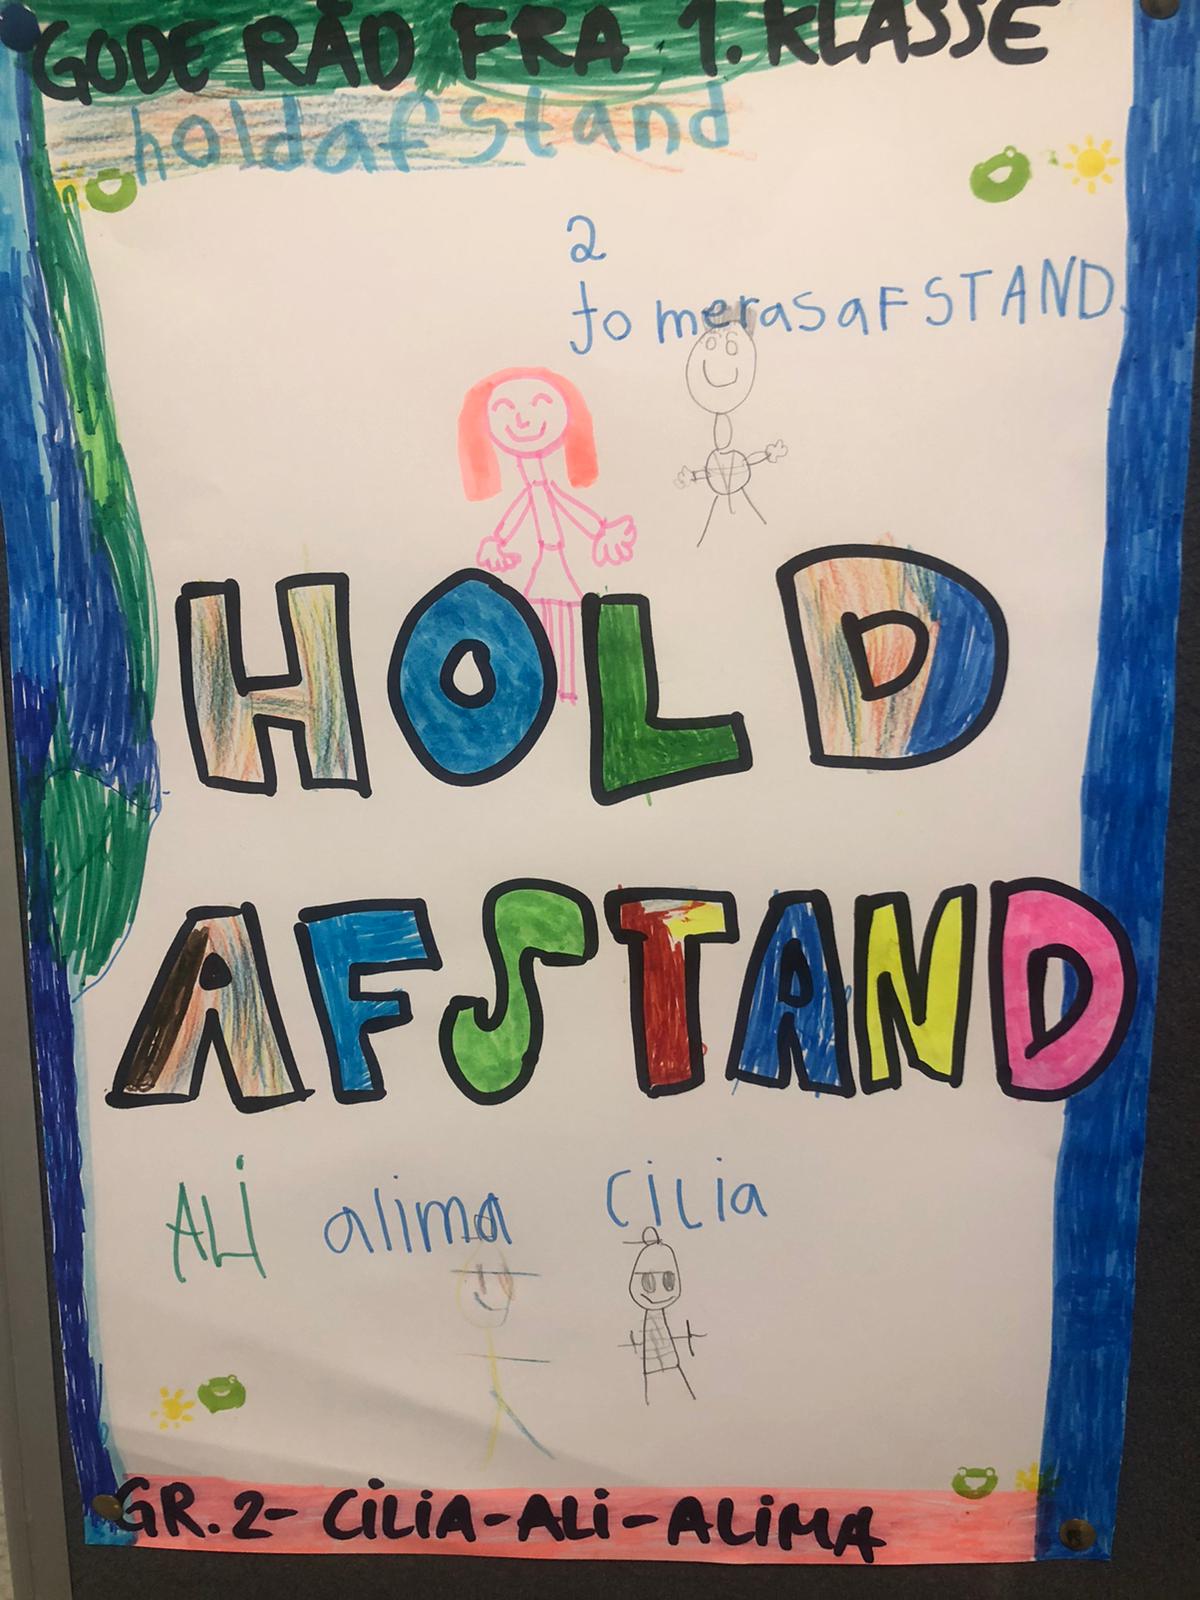 GODE RÅD FRA 1. KLASSE
holdafstand
2
to merasaFSTAND.
HOLD
AFSTAND
ALi alima Cilia
GR. 2- CiLiA-ALi-ALiMA